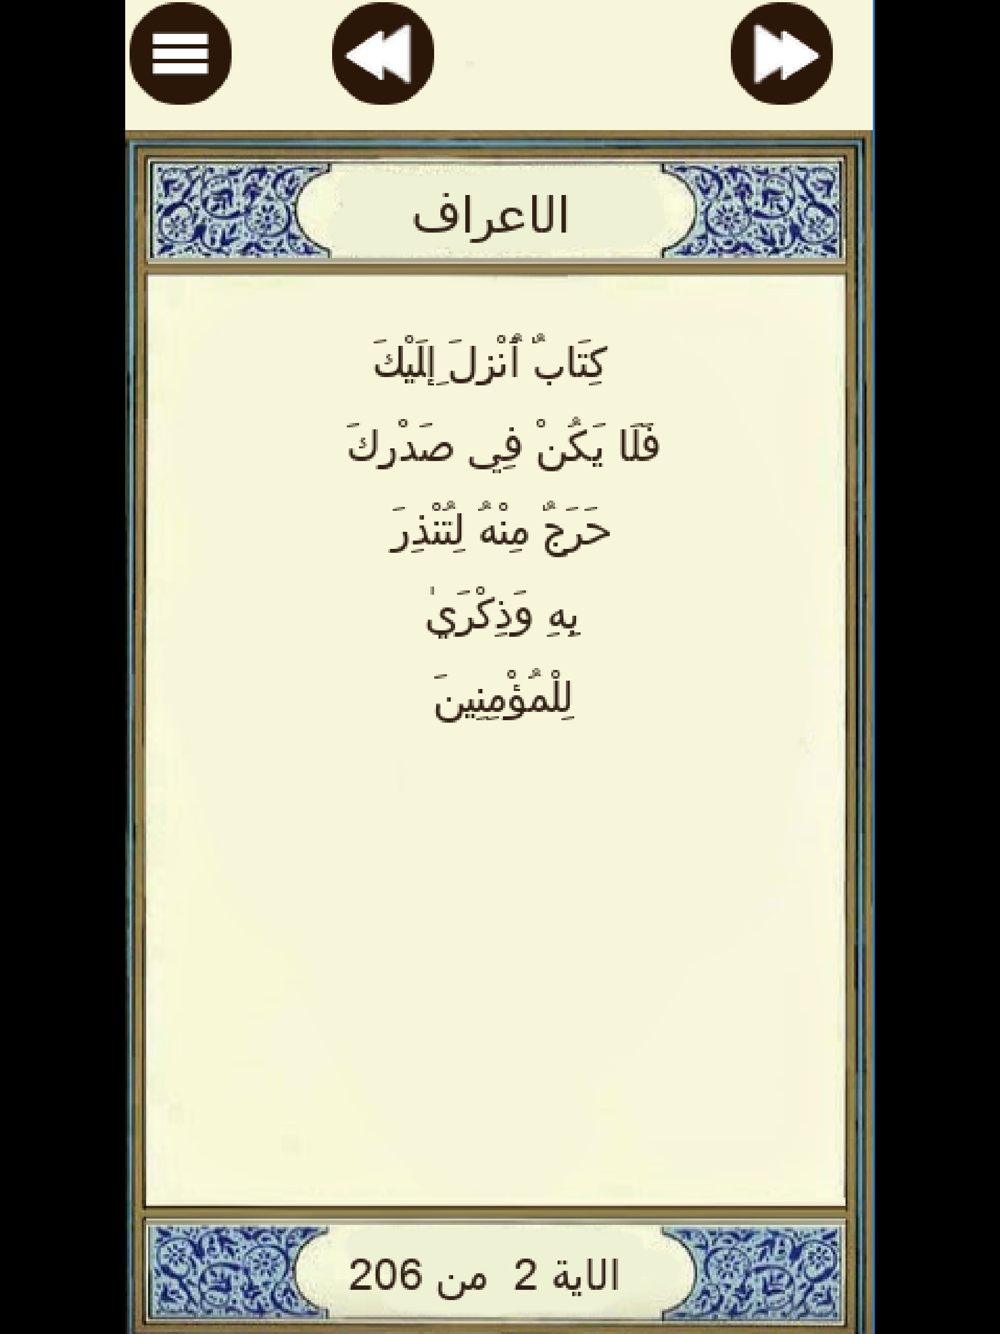 الاعراف
كِتَابٌ أُنْزِلَ إِلَيْكَ
فَلَا يَكُنْ فِي صَدْرِكَ
حَرَجٌ مِنْهُ لِتُنْذِرَ
بِهِ وَذِكْرَيٰ
لِلْمُؤْمِنِينَ
الاية 2 من 206